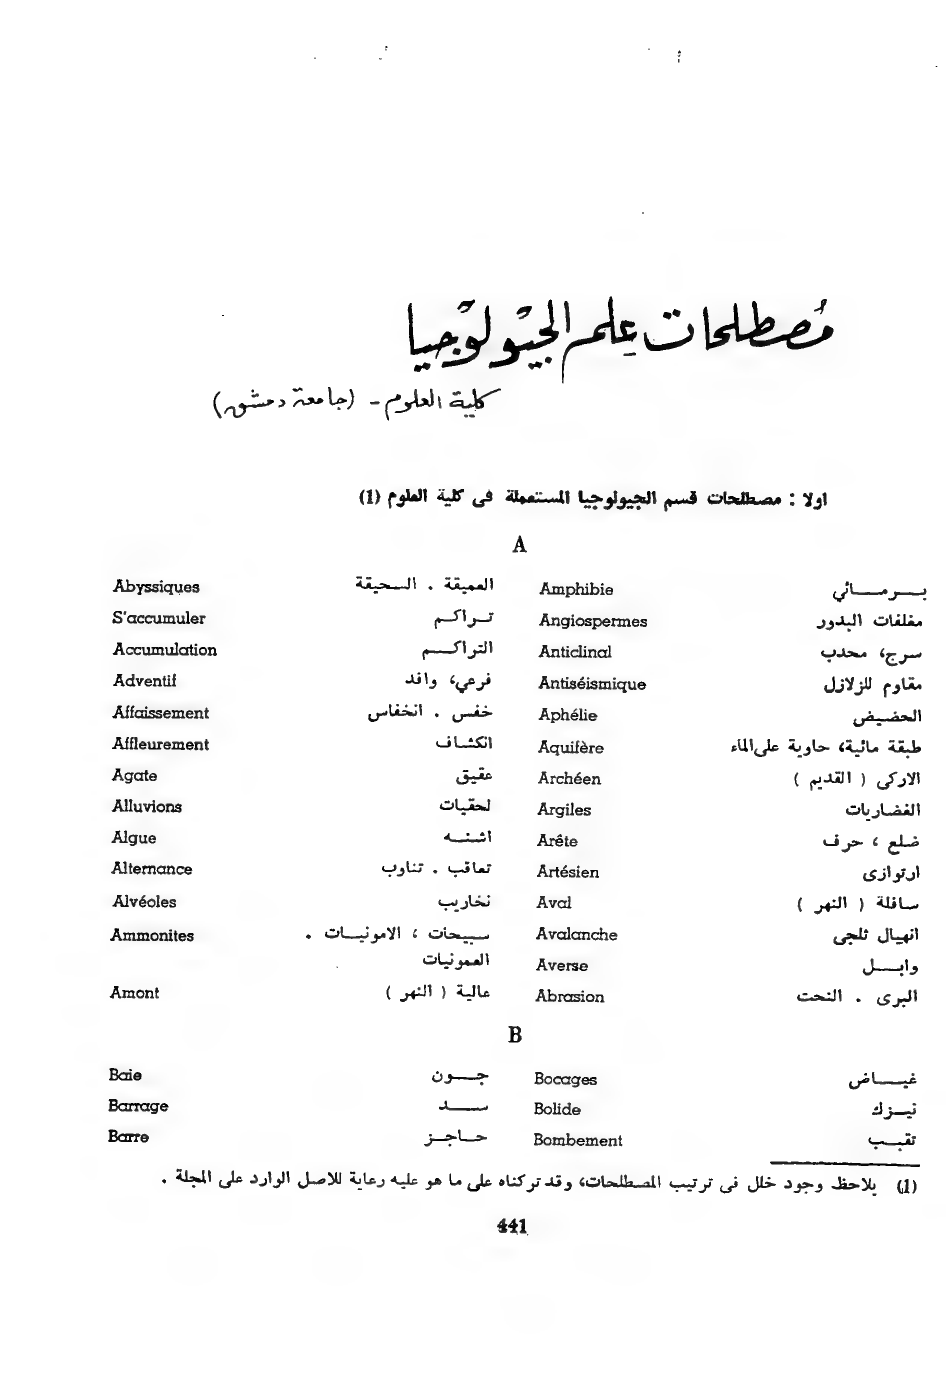 مُصطلحات عِلم الجيْولوْجيا
كلية العلوم - (جامعة دمشق)
اولا : مصطلحات قسم الجيولوجيا المستعملة فى كلية العلوم (1)
A
Abyssiques العميقة . السحيقة
S'accumuler تراكم
Accumulation التراكم
Adventif فرعي، وافد
Affaissement خفس . انخفاس
Affleurement انكشاف
Agate عقيق
Alluvions لحقيات
Algue اشنه
Alternance تعاقب . تناوب
Alvéoles نخاريب
Ammonites سبيحات ، الامونيات .
العمونيات
Amont عالية ( النهر )
Amphibie برمائي
Angiospermes مغلفات البدور
Anticlinal سرج، محدب
Antiséismique مقاوم للزلازل
Aphélie الحضيض
Aquifère طبقة مائية، حاوية على الماء
Archéen الاركى ( القديم )
Argiles الغضاريات
Arête ضلع ، حرف
Artésien ارتوازى
Aval سافلة ( النهر )
Avalanche انهيال ثلجى
Averse وابل
Abrasion البرى . النحت
B
Baie جون
Barrage سد
Barre حاجز
Bocages غياض
Bolide نيزك
Bombement تقبب
(1) يلاحظ وجود خلل فى ترتيب المصطلحات، وقد تركناه على ما هو عليه رعاية للاصل الوارد على المجلة .
441